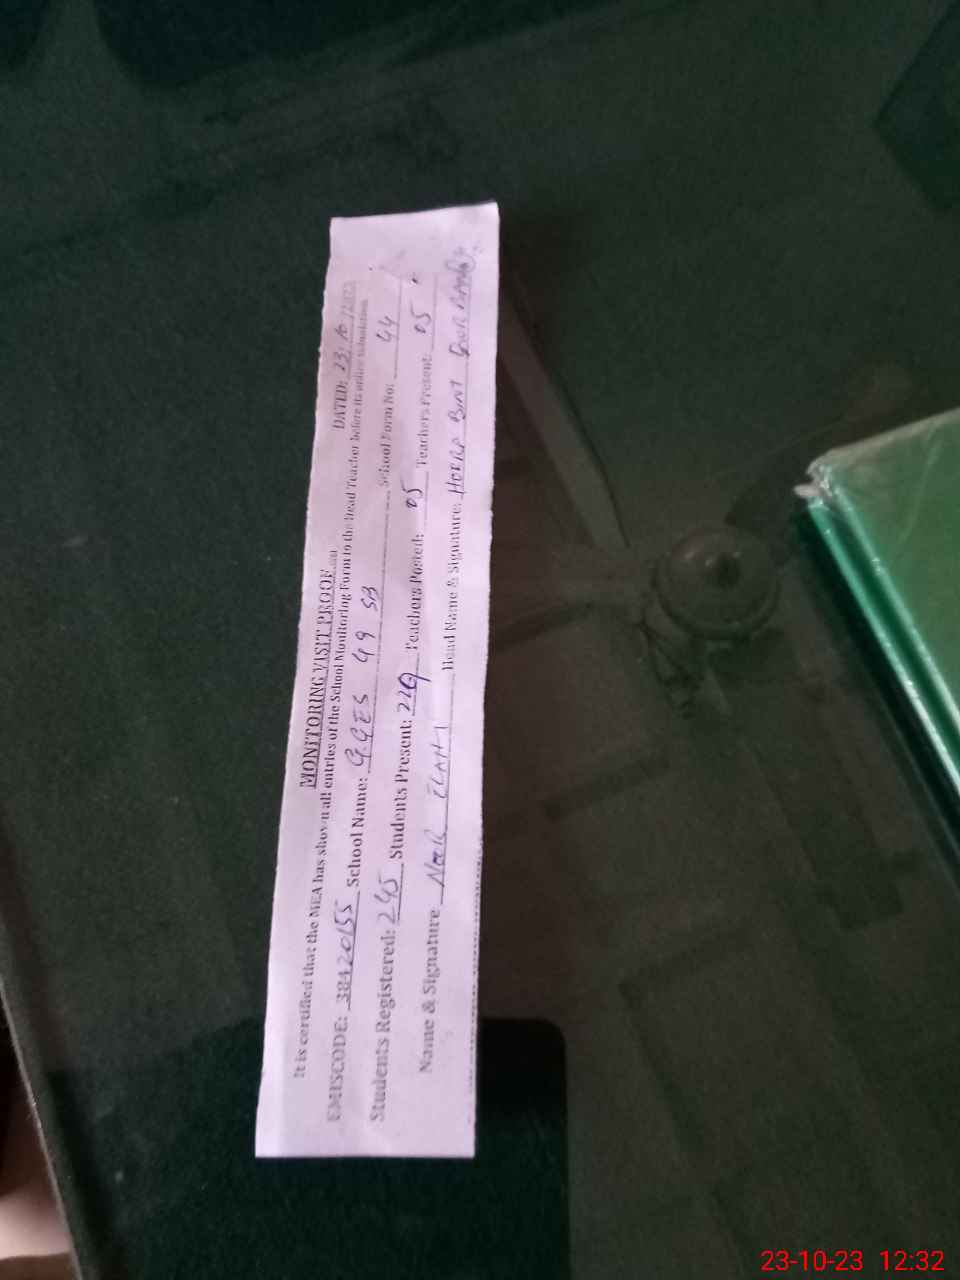 MONITORING VISIT PROOF DATED: 23, 10
It is certified that the MEA has shown all entries of the School Monitoring Form to the Head Teacher before its online submission
EMISCODE: 38420155 School Name: G.GES 49 SB School Form No: 44
Students Registered: 245 Students Present: 229 Teachers Posted: 05 Teachers Present: 05
Name & Signature Head Name & Signature: BINT
23-10-23 12:32